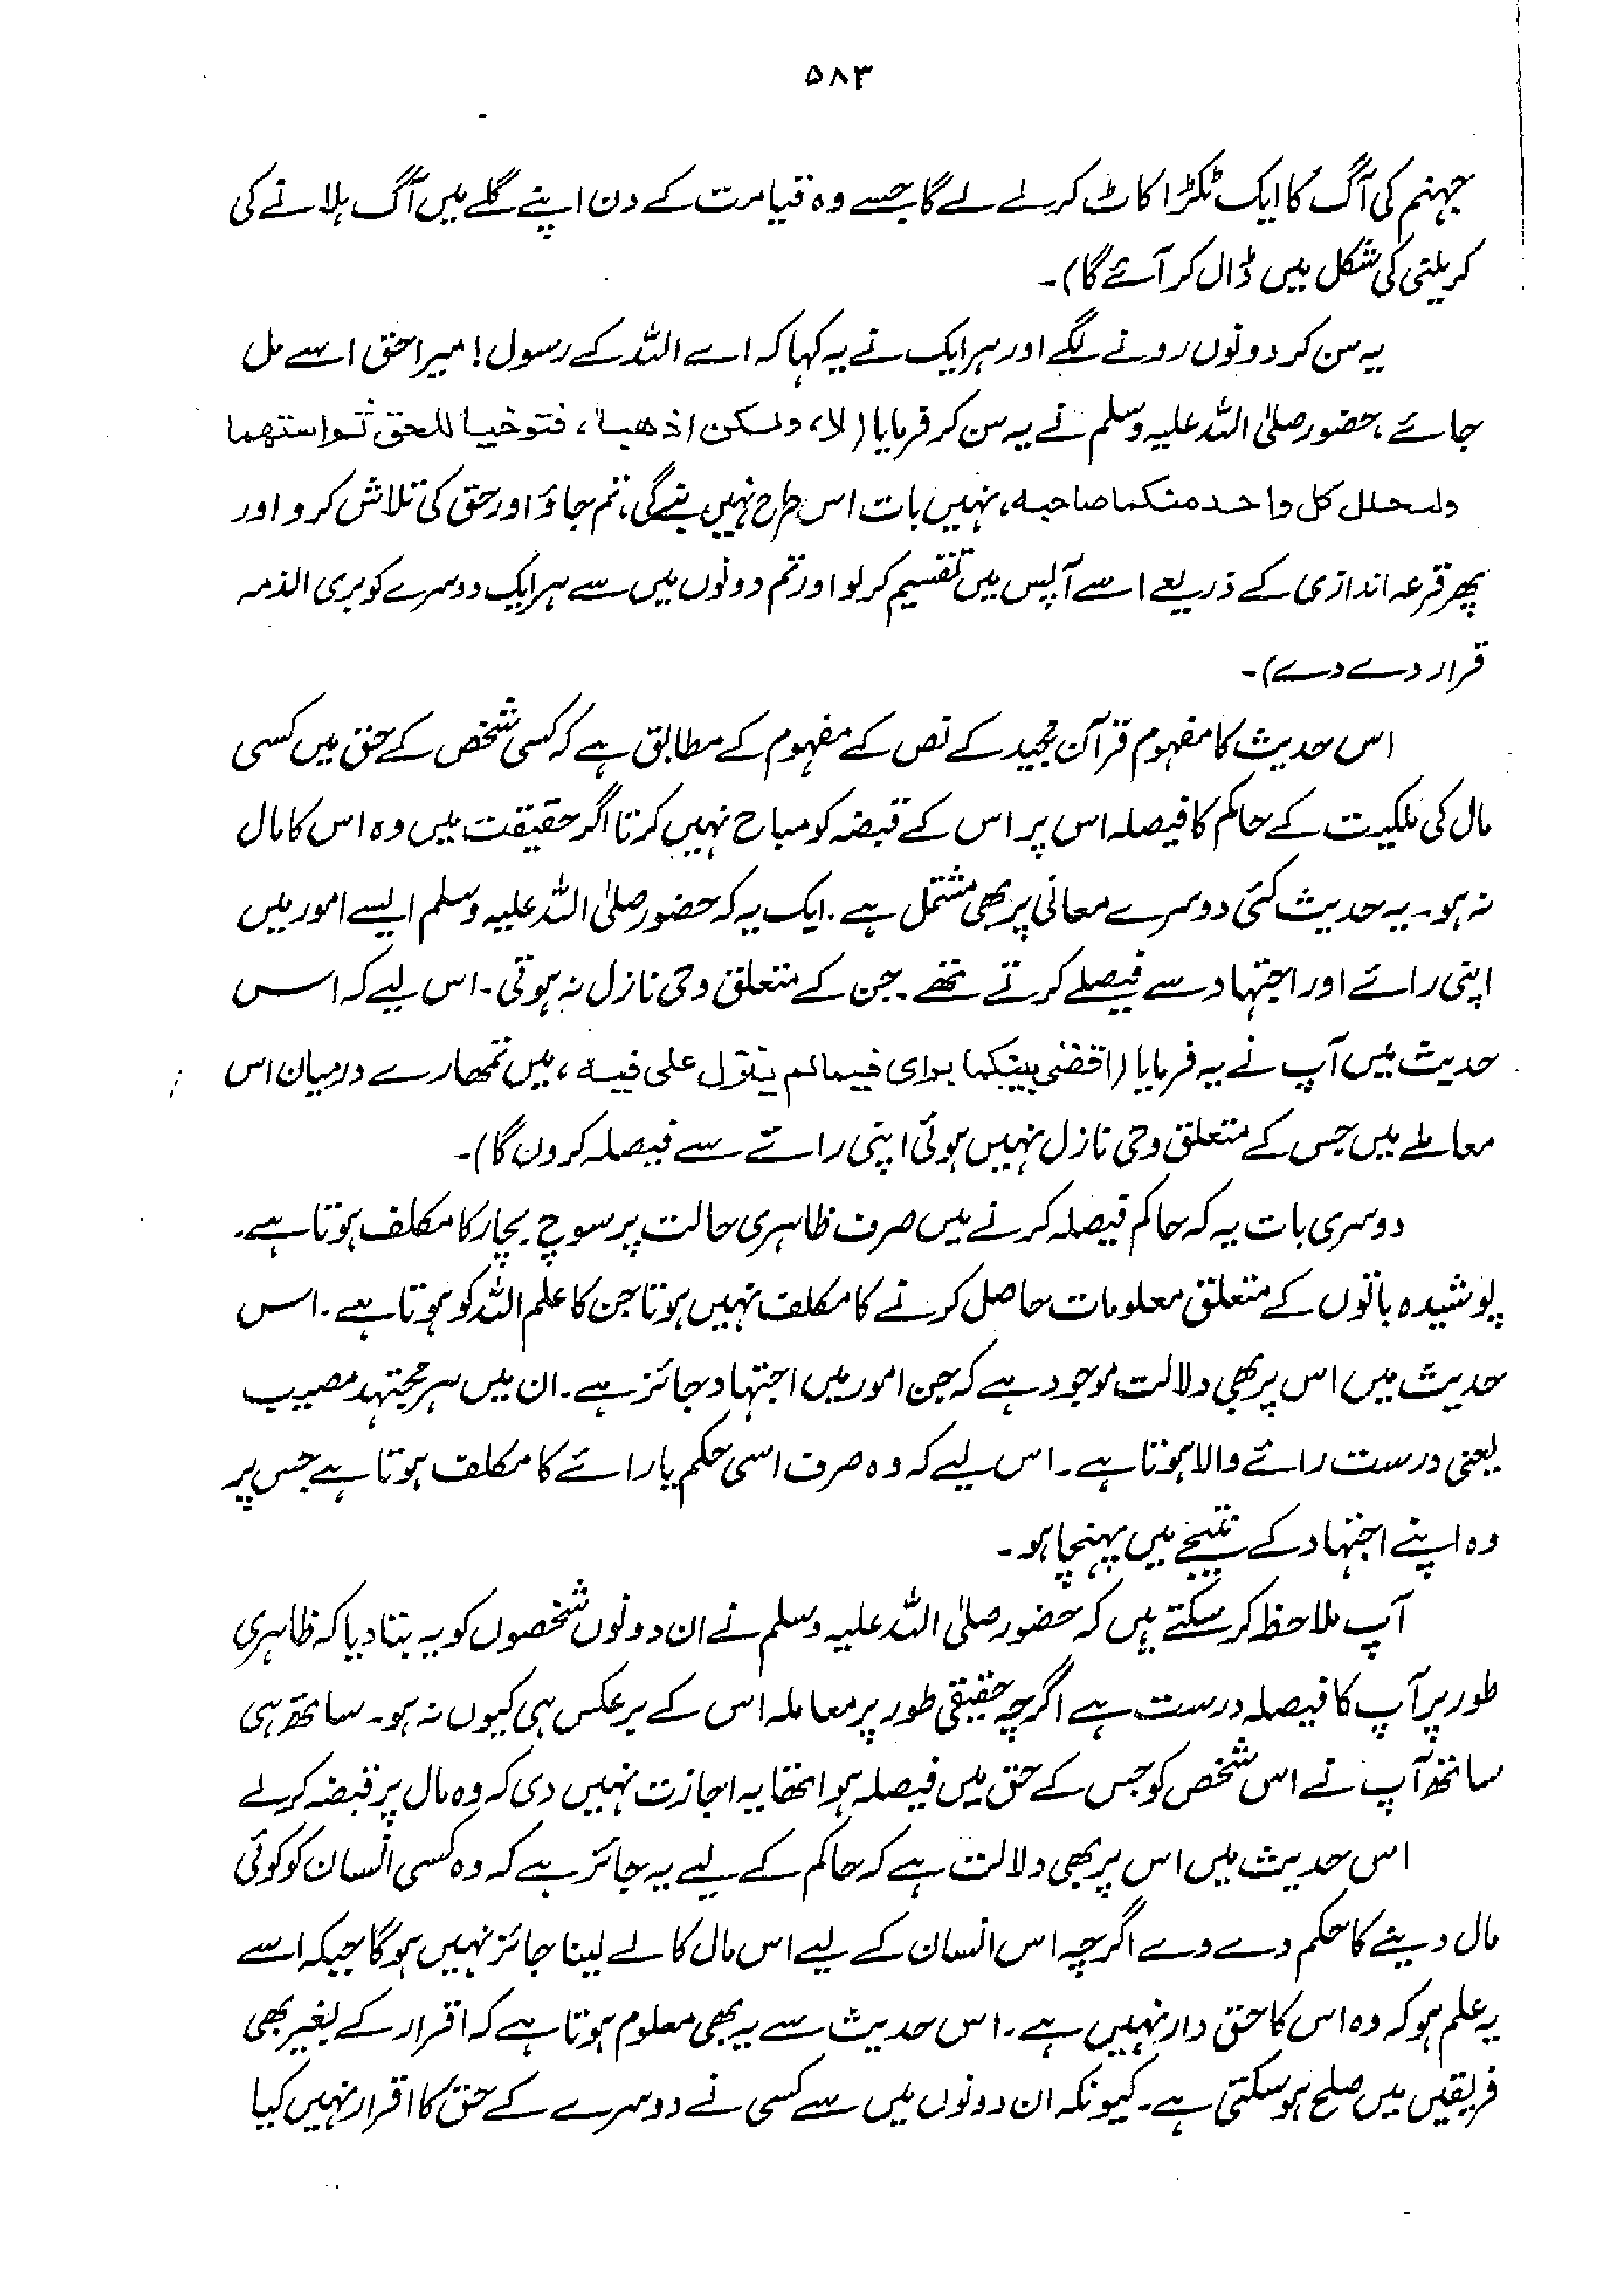 ۵۸۳
جہنم کی آگ کا ایک ٹکڑا کاٹ کر لے لے گا جسے وہ قیامت کے دن اپنے گلے میں آگ ہلانے کی
کریلنی کی شکل میں ڈال کر آئے گا)۔
یہ سن کر دونوں رونے لگے اور ہر ایک نے یہ کہا کہ اے اللہ کے رسول! میرا حق اسے مل
جائے، حضور صلی اللہ علیہ وسلم نے یہ سن کر فرمایا (لا، ولکن اذھبا، فتوخیا للحق ثم استھما
ولیحلل کل واحد منکما صاحبہ، نہیں بات اس طرح نہیں بنے گی، تم جاؤ اور حق کی تلاش کرو اور
پھر قرعہ اندازی کے ذریعے اسے آپس میں تقسیم کر لو اور تم دونوں میں سے ہر ایک دوسرے کو بری الذمہ
قرار دے دے)۔
اس حدیث کا مفہوم قرآن مجید کے نص کے مفہوم کے مطابق ہے کہ کسی شخص کے حق میں کسی
مال کی ملکیت کے حاکم کا فیصلہ اس پر اس کے قبضہ کو مباح نہیں کرتا اگر حقیقت میں وہ اس کا مال
نہ ہو۔ یہ حدیث کئی دوسرے معانی پر بھی مشتمل ہے۔ ایک یہ کہ حضور صلی اللہ علیہ وسلم ایسے امور میں
اپنی رائے اور اجتہاد سے فیصلے کرتے تھے۔ جن کے متعلق وحی نازل نہ ہوتی۔ اس لیے کہ اس
حدیث میں آپ نے یہ فرمایا (اقضی بینکما برای فیما لم ینزل علی فیہ، میں تمھارے درمیان اس
معاملے میں جس کے متعلق وحی نازل نہیں ہوئی اپنی رائے سے فیصلہ کروں گا)۔
دوسری بات یہ کہ حاکم فیصلہ کرنے میں صرف ظاہری حالت پر سوچ بچار کا مکلف ہوتا ہے۔
پوشیدہ باتوں کے متعلق معلومات حاصل کرنے کا مکلف نہیں ہوتا جن کا علم اللہ کو ہوتا ہے۔ اس
حدیث میں اس پر بھی دلالت موجود ہے کہ جن امور میں اجتہاد جائز ہے۔ ان میں ہر مجتہد مصیب
یعنی درست رائے والا ہوتا ہے۔ اس لیے کہ وہ صرف اسی حکم یا رائے کا مکلف ہوتا ہے جس پر
وہ اپنے اجتہاد کے نتیجے میں پہنچا ہو۔
آپ ملاحظہ کر سکتے ہیں کہ حضور صلی اللہ علیہ وسلم نے ان دونوں شخصوں کو یہ بتا دیا کہ ظاہری
طور پر آپ کا فیصلہ درست ہے اگرچہ حقیقی طور پر معاملہ اس کے برعکس ہی کیوں نہ ہو۔ ساتھ ہی
ساتھ آپ نے اس شخص کو جس کے حق میں فیصلہ ہوا تھا یہ اجازت نہیں دی کہ وہ مال پر قبضہ کر لے
اس حدیث میں اس پر بھی دلالت ہے کہ حاکم کے لیے یہ جائز ہے کہ وہ کسی انسان کو کوئی
مال دینے کا حکم دے دے اگرچہ اس انسان کے لیے اس مال کا لے لینا جائز نہیں ہوگا جبکہ اسے
یہ علم ہو کہ وہ اس کا حق دار نہیں ہے۔ اس حدیث سے یہ بھی معلوم ہوتا ہے کہ اقرار کے بغیر بھی
فریقین میں صلح ہو سکتی ہے۔ کیونکہ ان دونوں میں سے کسی نے دوسرے کے حق کا اقرار نہیں کیا